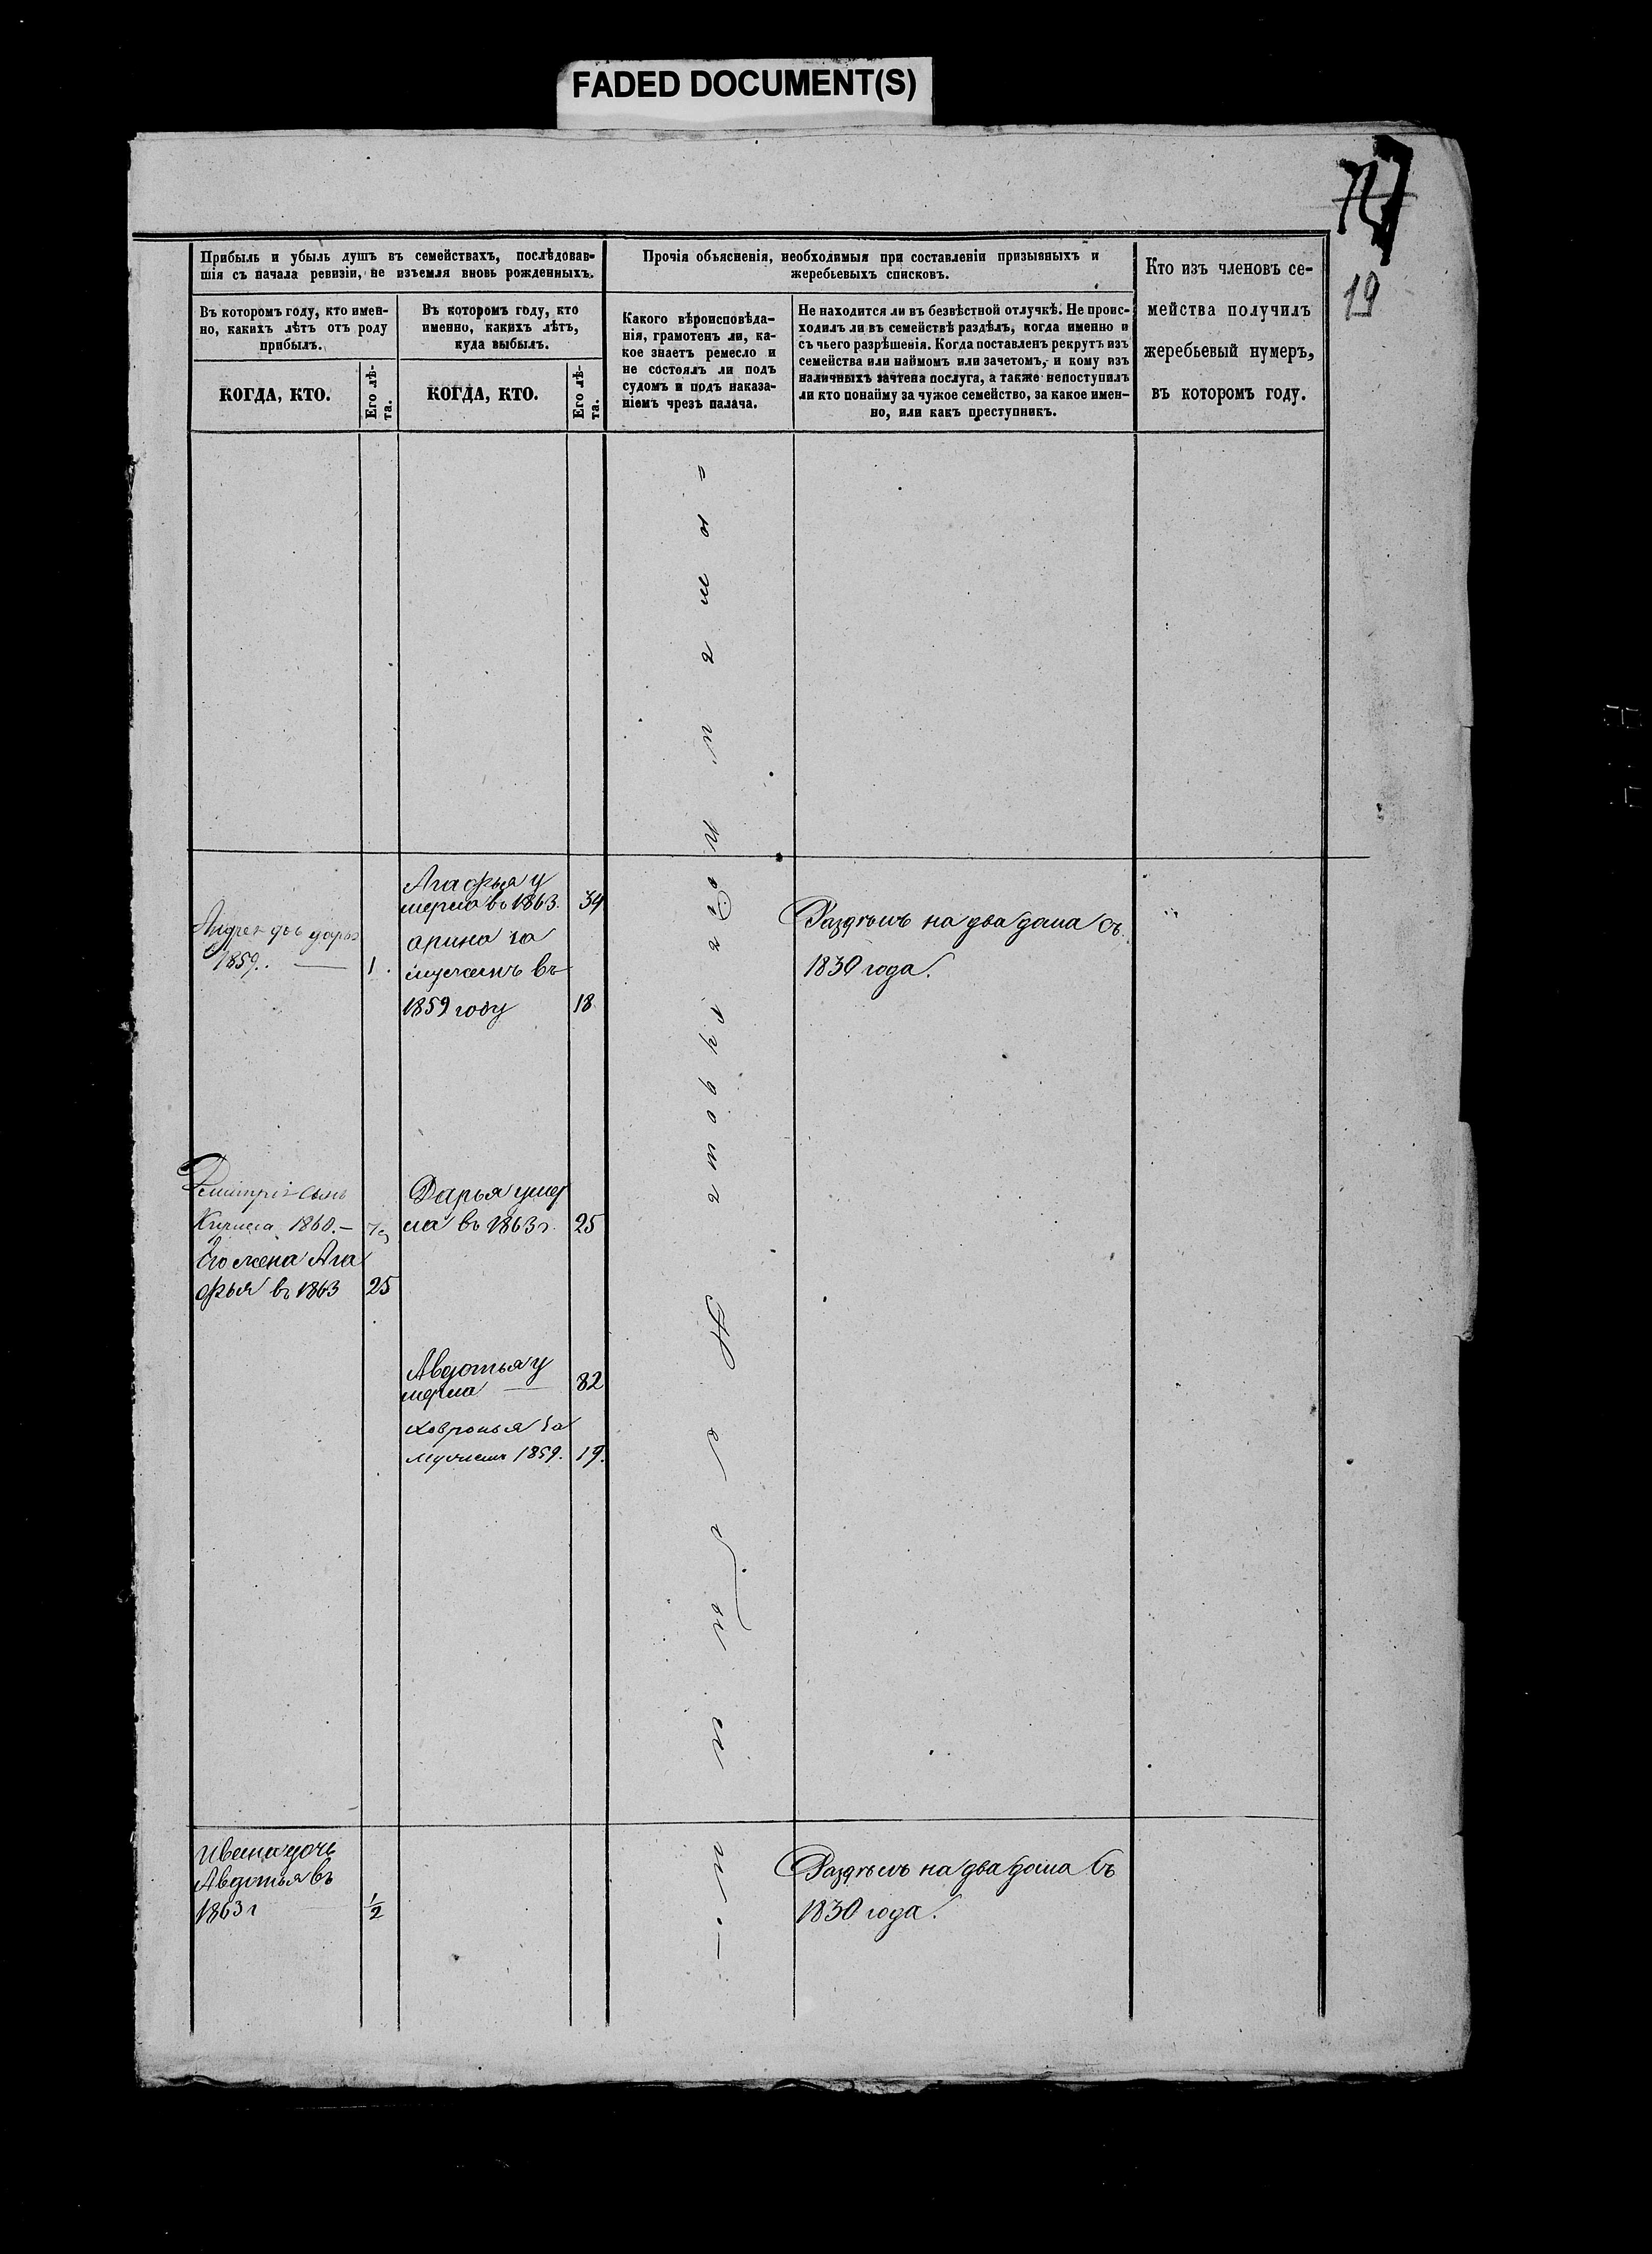 FADED DOCUMENT(S)
19
Прибыль и убыль душъ въ семействахъ, послѣдовав-
шія съ начала ревизіи, не изъемля вновь рожденныхъ.
Въ которомъ году, кто имен-
но, какихъ лѣтъ отъ роду
прибылъ.
КОГДА, КТО.
Его лѣ-
та.
Въ которомъ году, кто
именно, какихъ лѣтъ,
куда выбылъ.
КОГДА, КТО.
Его лѣ-
та.
Прочія объясненія, необходимыя при составленіи призывныхъ и
жеребьевыхъ списковъ.
Какого вѣроисповѣда-
нія, грамотенъ ли, ка-
кое знаетъ ремесло и
не состоялъ ли подъ
судомъ и подъ наказа-
ніемъ чрезъ палача.
Не находится ли въ безвѣстной отлучкѣ. Не проис-
ходилъ ли въ семействѣ раздѣлъ, когда именно и
съ чьего разрѣшенія. Когда поставленъ рекрутъ изъ
семейства или наймомъ или зачетомъ, и кому изъ
наличныхъ зачтена послуга, а также непоступилъ
ли кто понайму за чужое семейство, за какое имен-
но, или какъ преступникъ.
Кто изъ членовъ се-
мейства получилъ
жеребьевый нумеръ,
въ которомъ году.
Агафья у
мерла въ 1863. 34
1859. 1.
арина за
мужемъ въ
1859 году 18
Раздѣлъ на два дома съ
1830 года.
Кирила 1860.
Его жена Ага
фья въ 1863 25
Дарья умер
ла въ 1863 г. 25
Авдотья у
мерла 82
Ховронья за
мужемъ 1859. 19.
Ивана дочь
Авдотья въ
1863 г 1/2
Раздѣлъ на два дома съ
1830 года.